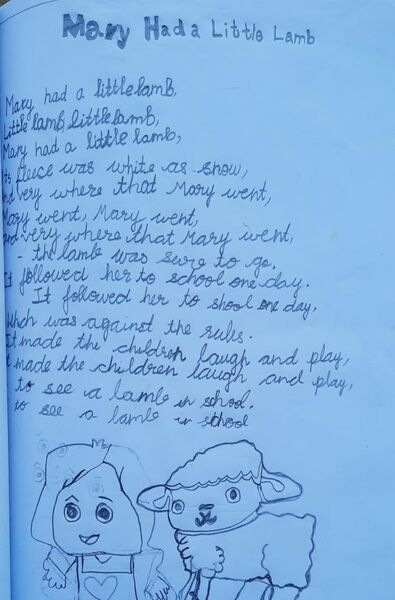 Mary Had a Little Lamb
Mary had a little lamb
Little lamb little lamb,
Mary had a little lamb,
Its fleece was white as snow,
and very where that Mary went,
Mary went, Mary went,
and very where that Mary went,
- the lamb was sure to go.
It followed her to school one day.
It followed her to shool one day.
Which was against the ruls.
It made the children laugh and play,
t made the children laugh and play,
to see a lamb in school.
to see a lamb in school